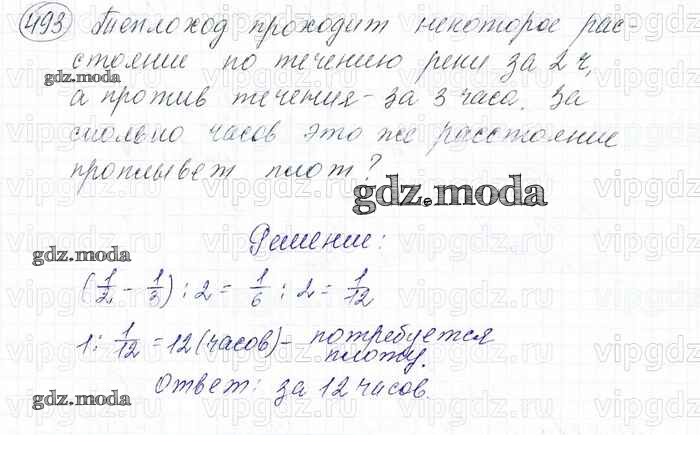 493 Теплоход проходит некоторое рас-
стояние по течению реки за 2 ч,
а против течения - за 3 часа. За
сколько часов это же расстояние
проплывет плот?
Решение:
(1/2 - 1/3) : 2 = 1/6 : 2 = 1/12
1 : 1/12 = 12 (часов) - потребуется
плоту.
Ответ: за 12 часов.
gdz.moda
gdz.moda
gdz.moda
gdz.moda
vipgdz.ru